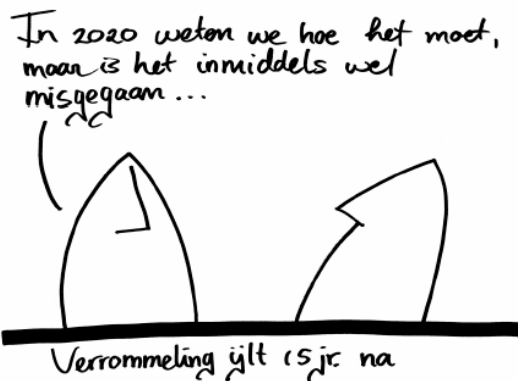 In 2020 weten we hoe het moet,
maar is het inmiddels wel
misgegaan ...
Verrommeling ijlt 15 jr. na